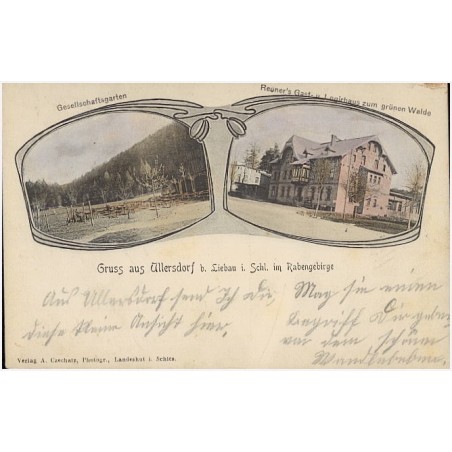 Gesellschaftsgarten
Reuner's Gast- u. Logirhaus zum grünen Walde
Gruss aus Ullersdorf b. Liebau i. Schl. im Rabengebirge
Aus Ullersdorf send Ich die
diese kleine Ansicht hier,
Mag sie einen
begriff Dir geben
vor dem schönen
Verlag A. Czechatz, Photogr., Landeshut i. Schles.